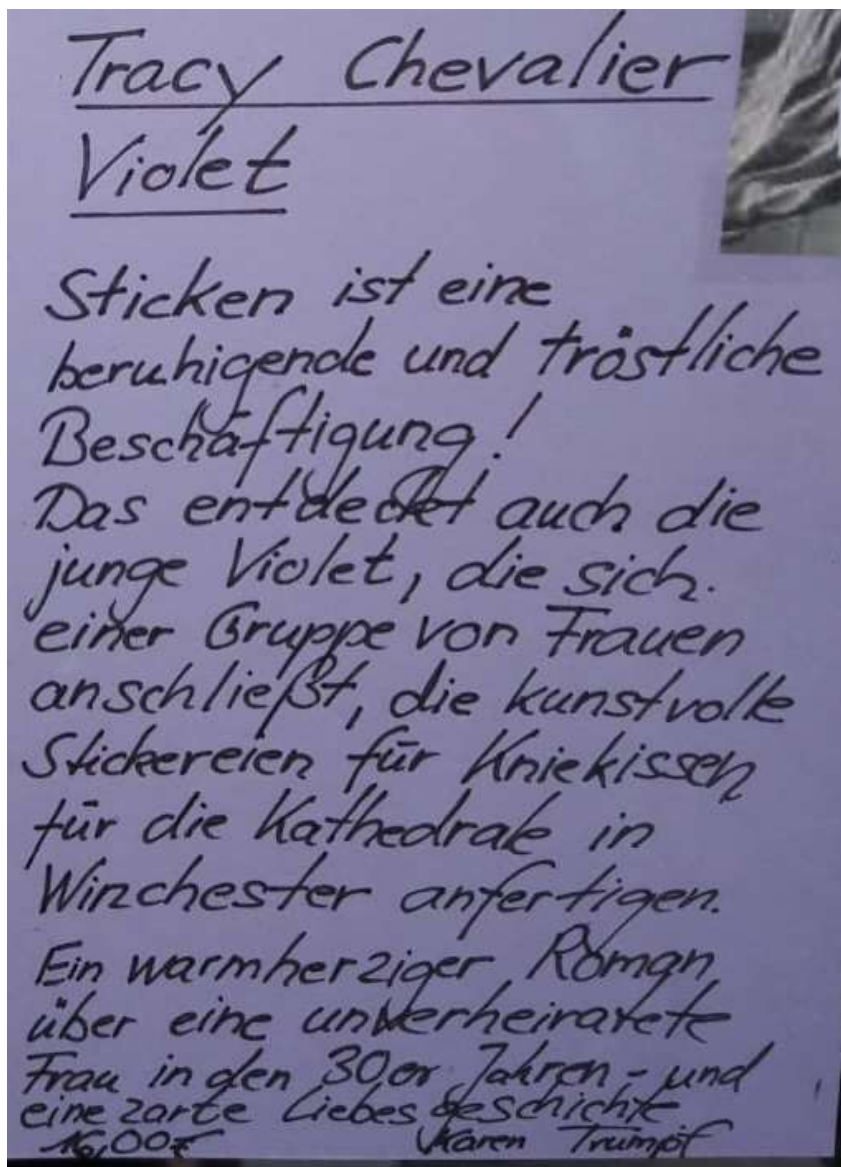 Tracy Chevalier
Violet
Sticken ist eine
beruhigende und tröstliche
Beschäftigung!
Das entdecket auch die
junge Violet, die sich
einer Gruppe von Frauen
anschließt, die kunstvolle
Stickereien für Kniekissen
für die Kathedrale in
Winchester anfertigen.
Ein warmherziger Roman
über eine unverheiratete
Frau in den 30er Jahren - und
eine zarte Liebesgeschichte
16,00€ Karen Trumpf